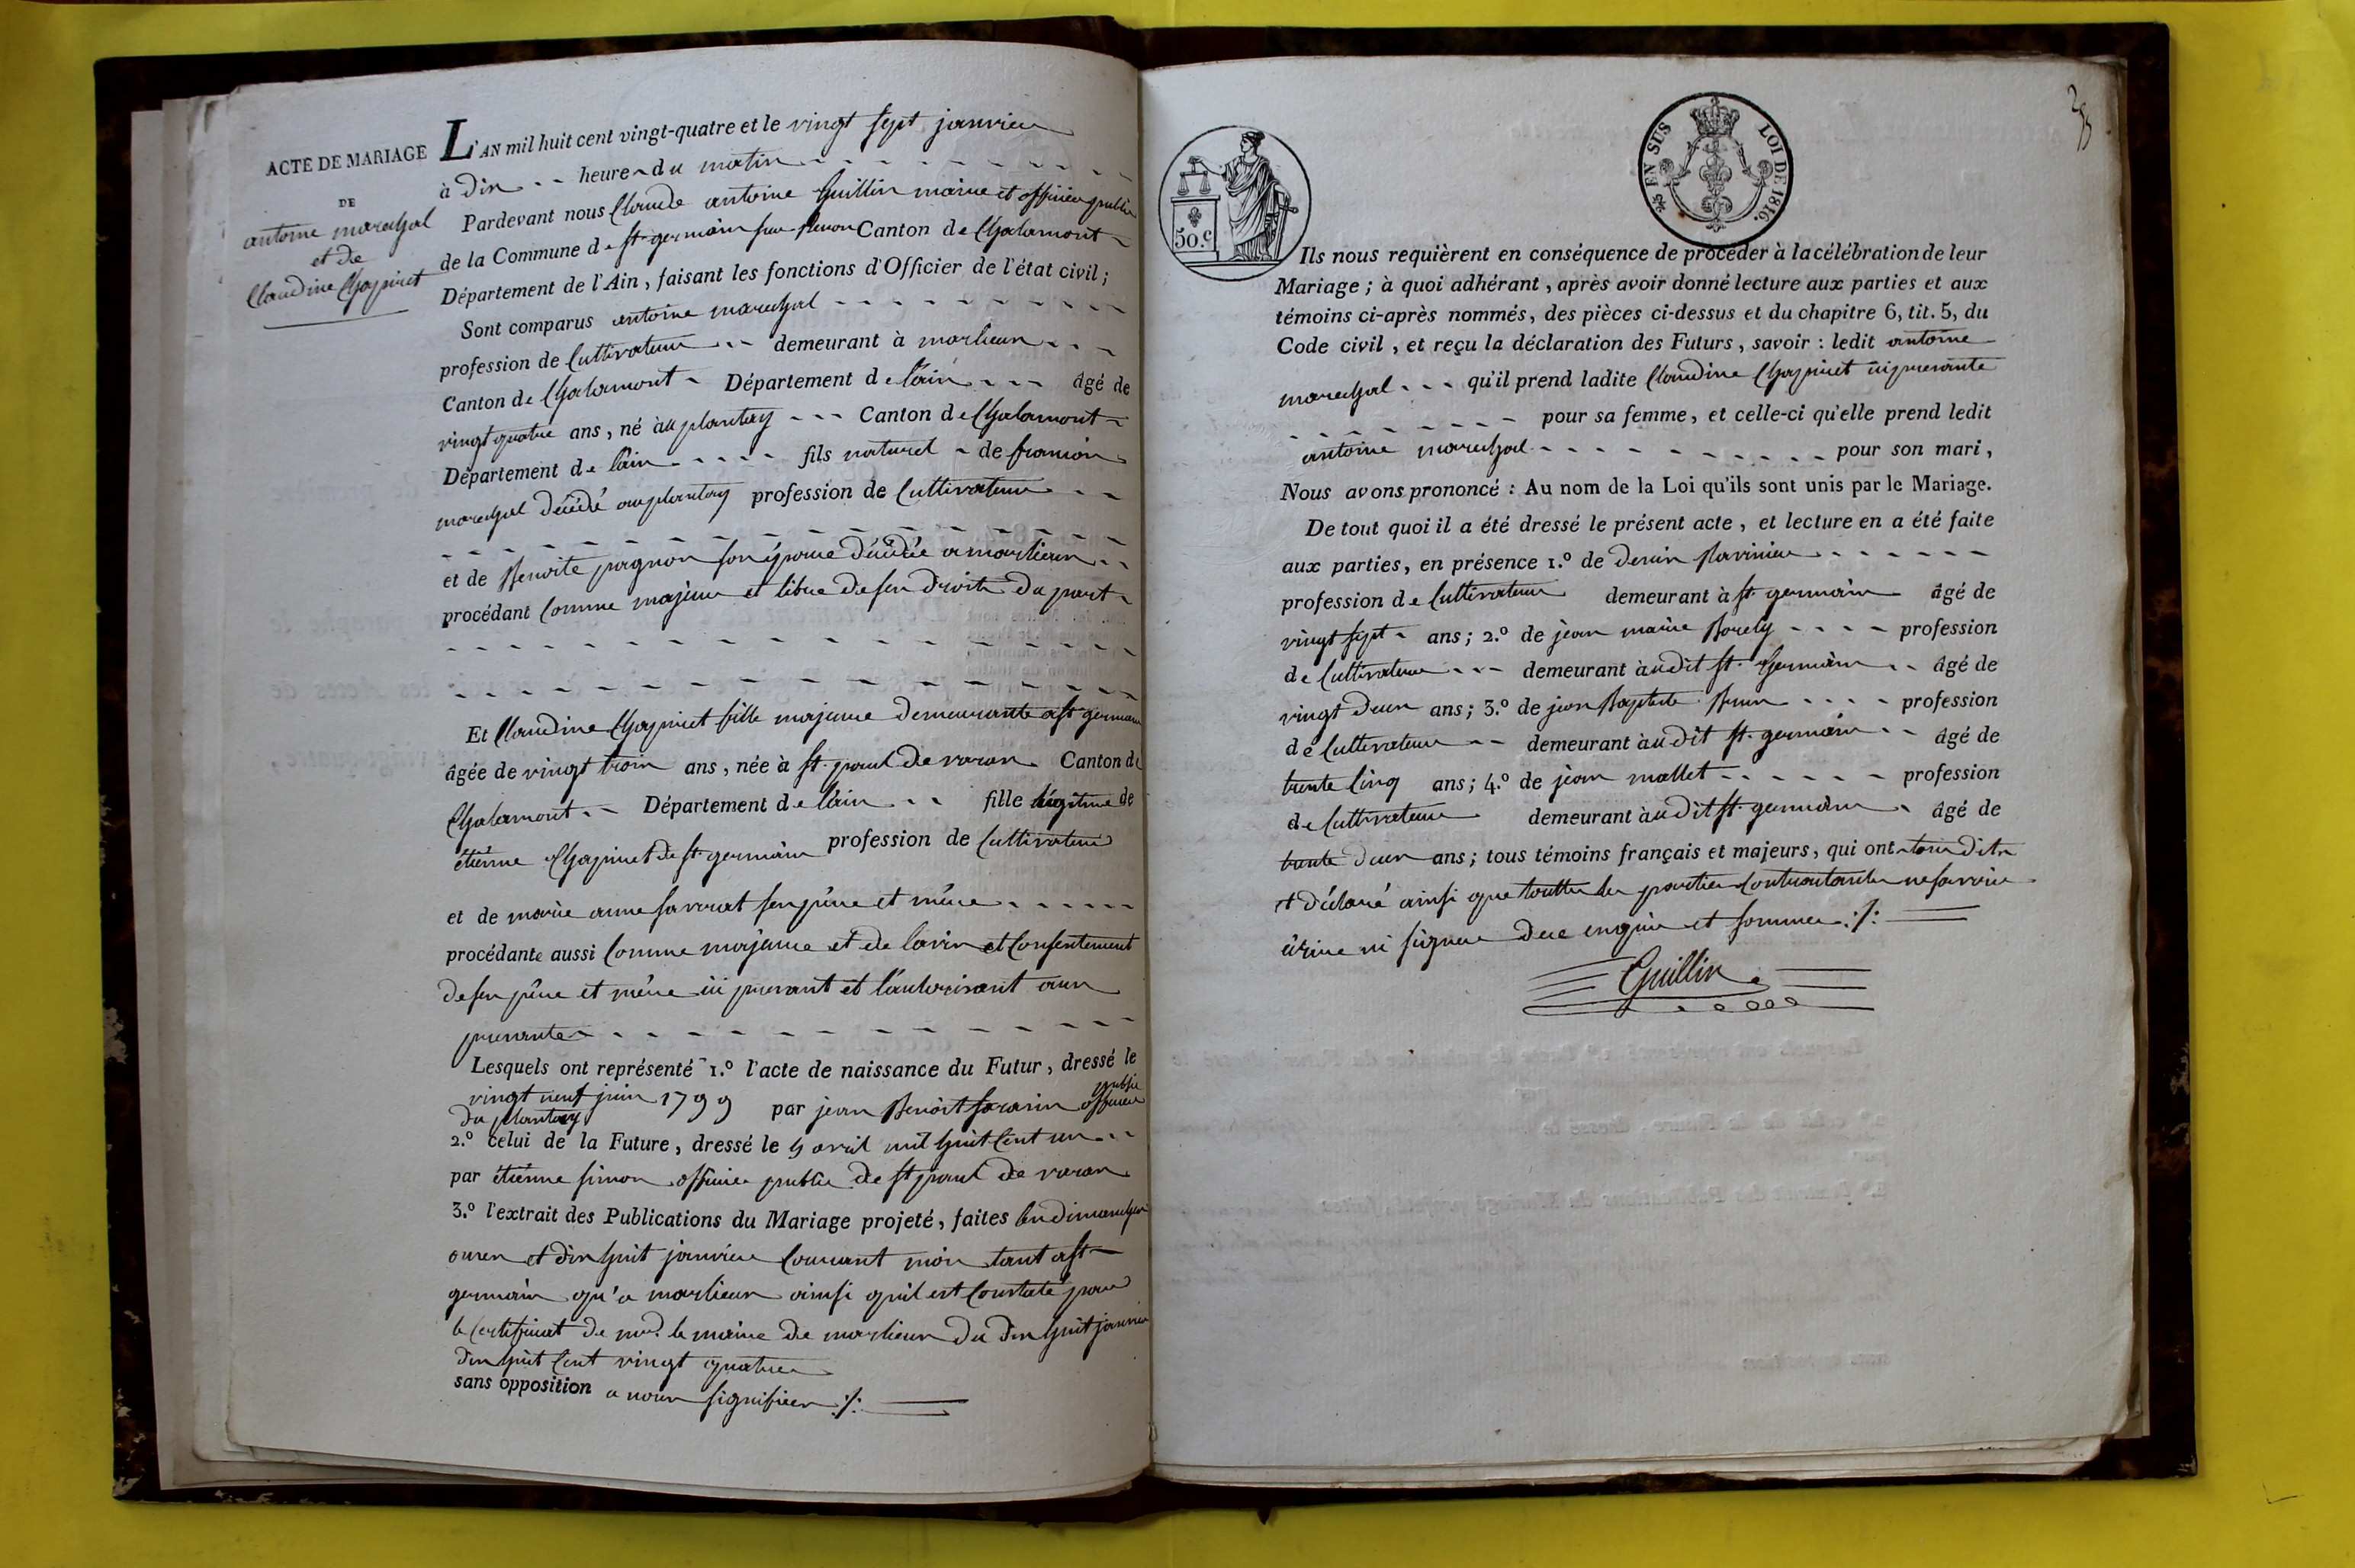 ACTE DE MARIAGE
DE
antoine marechal
et de
Claudine Chapinet
L'AN mil huit cent vingt-quatre et le vingt sept janvier
à dix heures du matin
Pardevant nous Claude antoine Guillin maire et officier public
de la Commune de st germain sur Renon Canton de Chalamont
Département de l'Ain, faisant les fonctions d'Officier de l'état civil;
Sont comparus antoine marechal
profession de Cultivateur demeurant à marlieux
Canton de Chalamont Département de l'ain âgé de
vingt quatre ans, né au plantay Canton de Chalamont
Département de l'ain fils naturel de
marechal décédé au plantay profession de Cultivateur
et de Benoite pagnon son épouse décédée a marlieux
procédant Comme majeur et libre de ses droits da part
Et Claudine Chapinet fille majeure demeurante a st germain
âgée de vingt trois ans, née à st paul de varax Canton de
Chalamont Département de l'ain fille légitime de
étienne Chapinet de st germain profession de Cultivateur
et de marie anne favrat ses père et mère
procédante aussi Comme majeure et de l'avis et Consentement
de ses père et mère ici présent et l'autorisant aux
présentes
Lesquels ont représenté 1.º l'acte de naissance du Futur, dressé le
vingt neuf juin 1799 par jean Benoit sarasin officier public
du plantay
2.º celui de la Future, dressé le 9 avril mil huit Cent un
par étienne simon officier public de st paul de varax
3.º l'extrait des Publications du Mariage projeté, faites les dimanches
onze et dix huit janvier Courant mois tant a st
germain qu'a marlieux ainsi qu'il est Constaté par
le Certificat de mr. le maire de marlieux du dix huit janvier
dix huit Cent vingt quatre
sans opposition a nous signifiée ·/·
50.c
EN SUS LOI DE 1816.
35
Ils nous requièrent en conséquence de procéder à la célébration de leur
Mariage; à quoi adhérant, après avoir donné lecture aux parties et aux
témoins ci-après nommés, des pièces ci-dessus et du chapitre 6, tit. 5, du
Code civil, et reçu la déclaration des Futurs, savoir: ledit antoine
marechal qu'il prend ladite Claudine Chapinet ci présente
pour sa femme, et celle-ci qu'elle prend ledit
antoine marechal pour son mari,
Nous avons prononcé: Au nom de la Loi qu'ils sont unis par le Mariage.
De tout quoi il a été dressé le présent acte, et lecture en a été faite
aux parties, en présence 1.º de denis Ravinier
profession de Cultivateur demeurant à st germain âgé de
vingt sept ans; 2.º de jean marie Borely profession
de Cultivateur demeurant audit st. Germain âgé de
vingt deux ans; 3.º de jean Baptiste profession
de Cultivateur demeurant audit st. germain âgé de
trente Cinq ans; 4.º de jean mallet profession
de Cultivateur demeurant audit st germain âgé de
trente deux ans; tous témoins français et majeurs, qui ont tous dit
et déclaré ainsi que touttes les parties Contractantes ne savoir
écrire ni signer de ce enquis et sommés ·/·
Guillin